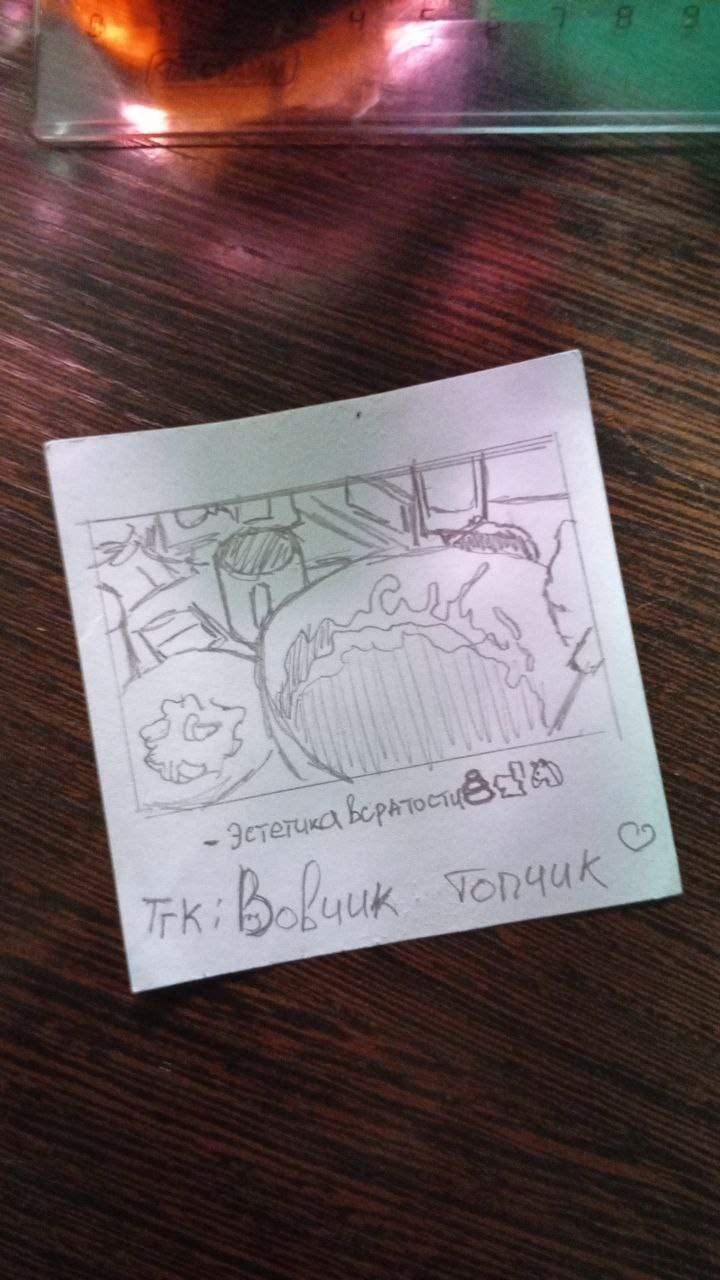 0 1 2 3 4 5 6 7 8 9
- Эстетика всратости
ТГК: Вовчик Топчик